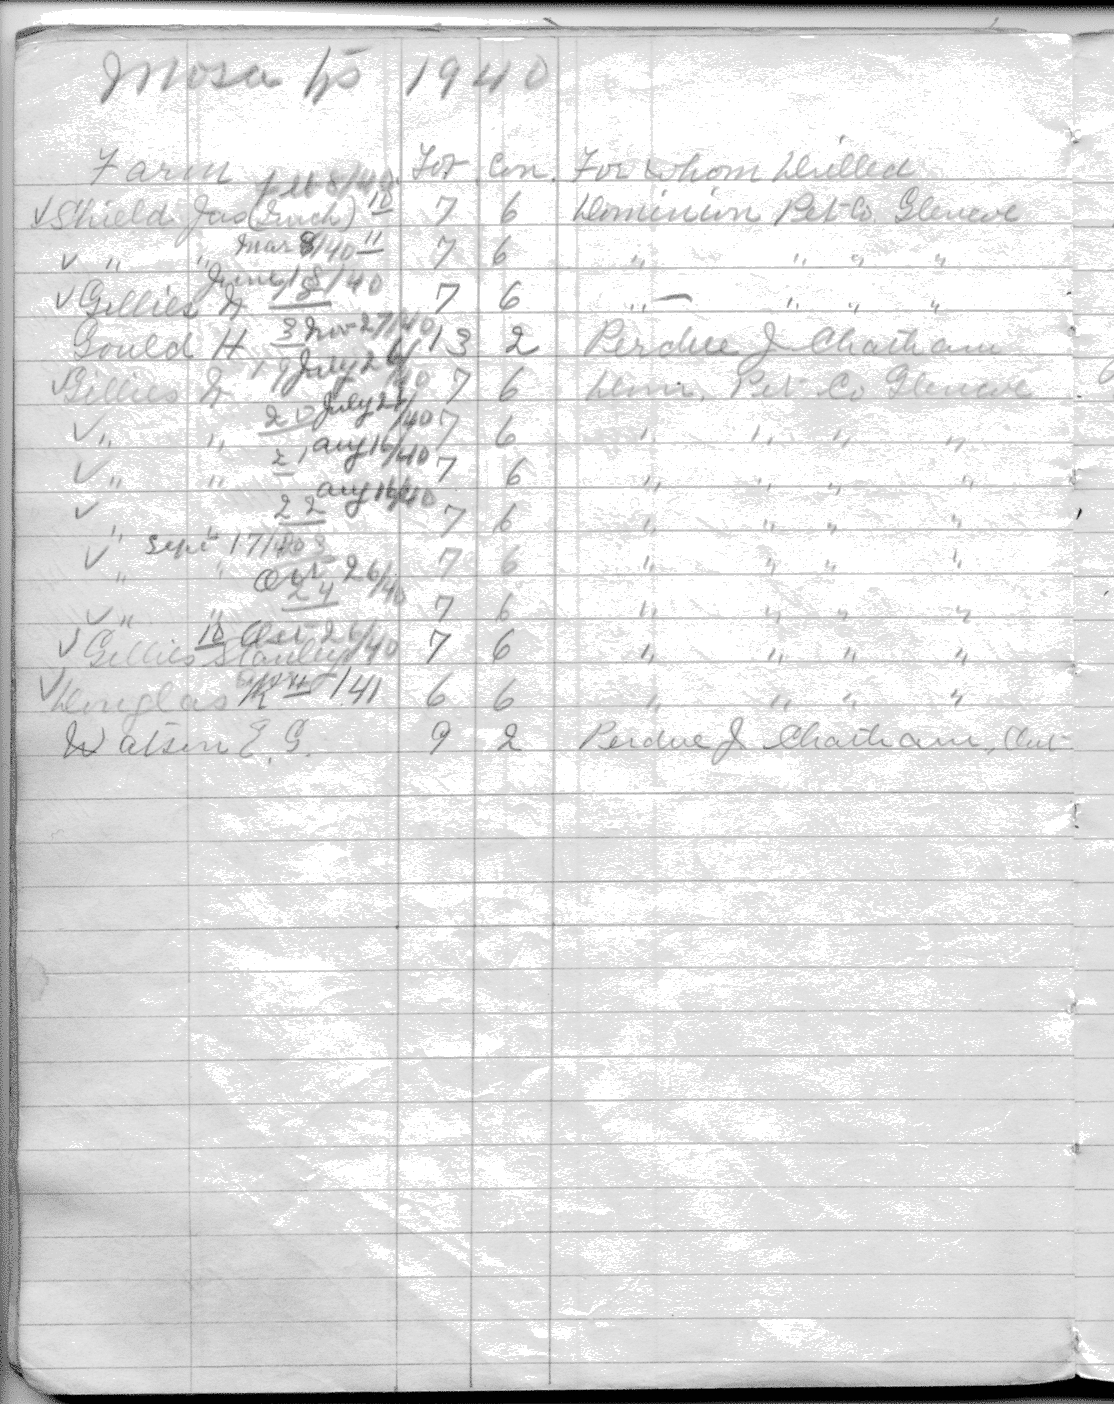 Mosa Tp 1940
Farm Lot Con. For whom Drilled
Feb 8/40
✓ Shield Jas 10 7 6 Dominion Pet Co Glencoe
Mar 8/40 11
✓ " " 7 6 " " " "
June 18/40
✓ Gillies D 18 7 6 " " " "
Gould H 3 Nov 27/40 13 2 Perdue J Chatham
✓ Gillies D 19 July 26/40 7 6 Dom. Pet Co Glencoe
✓ " " 20 July 26/40 7 6 " " " "
✓ " " 21 aug 16/40 7 6 " " " "
aug 16/40
✓ " " 22 7 6 " " " "
Sept 17/40
✓ " " 7 6 " " " "
Oct 26/40
✓ " " 24 7 6 " " " "
10 Oct 26/40
✓ Gillies Stanley 7 6 " " " "
✓ Douglas /41 6 6 " " " "
Watson E. G. 9 2 Perdue J Chatham, Ont